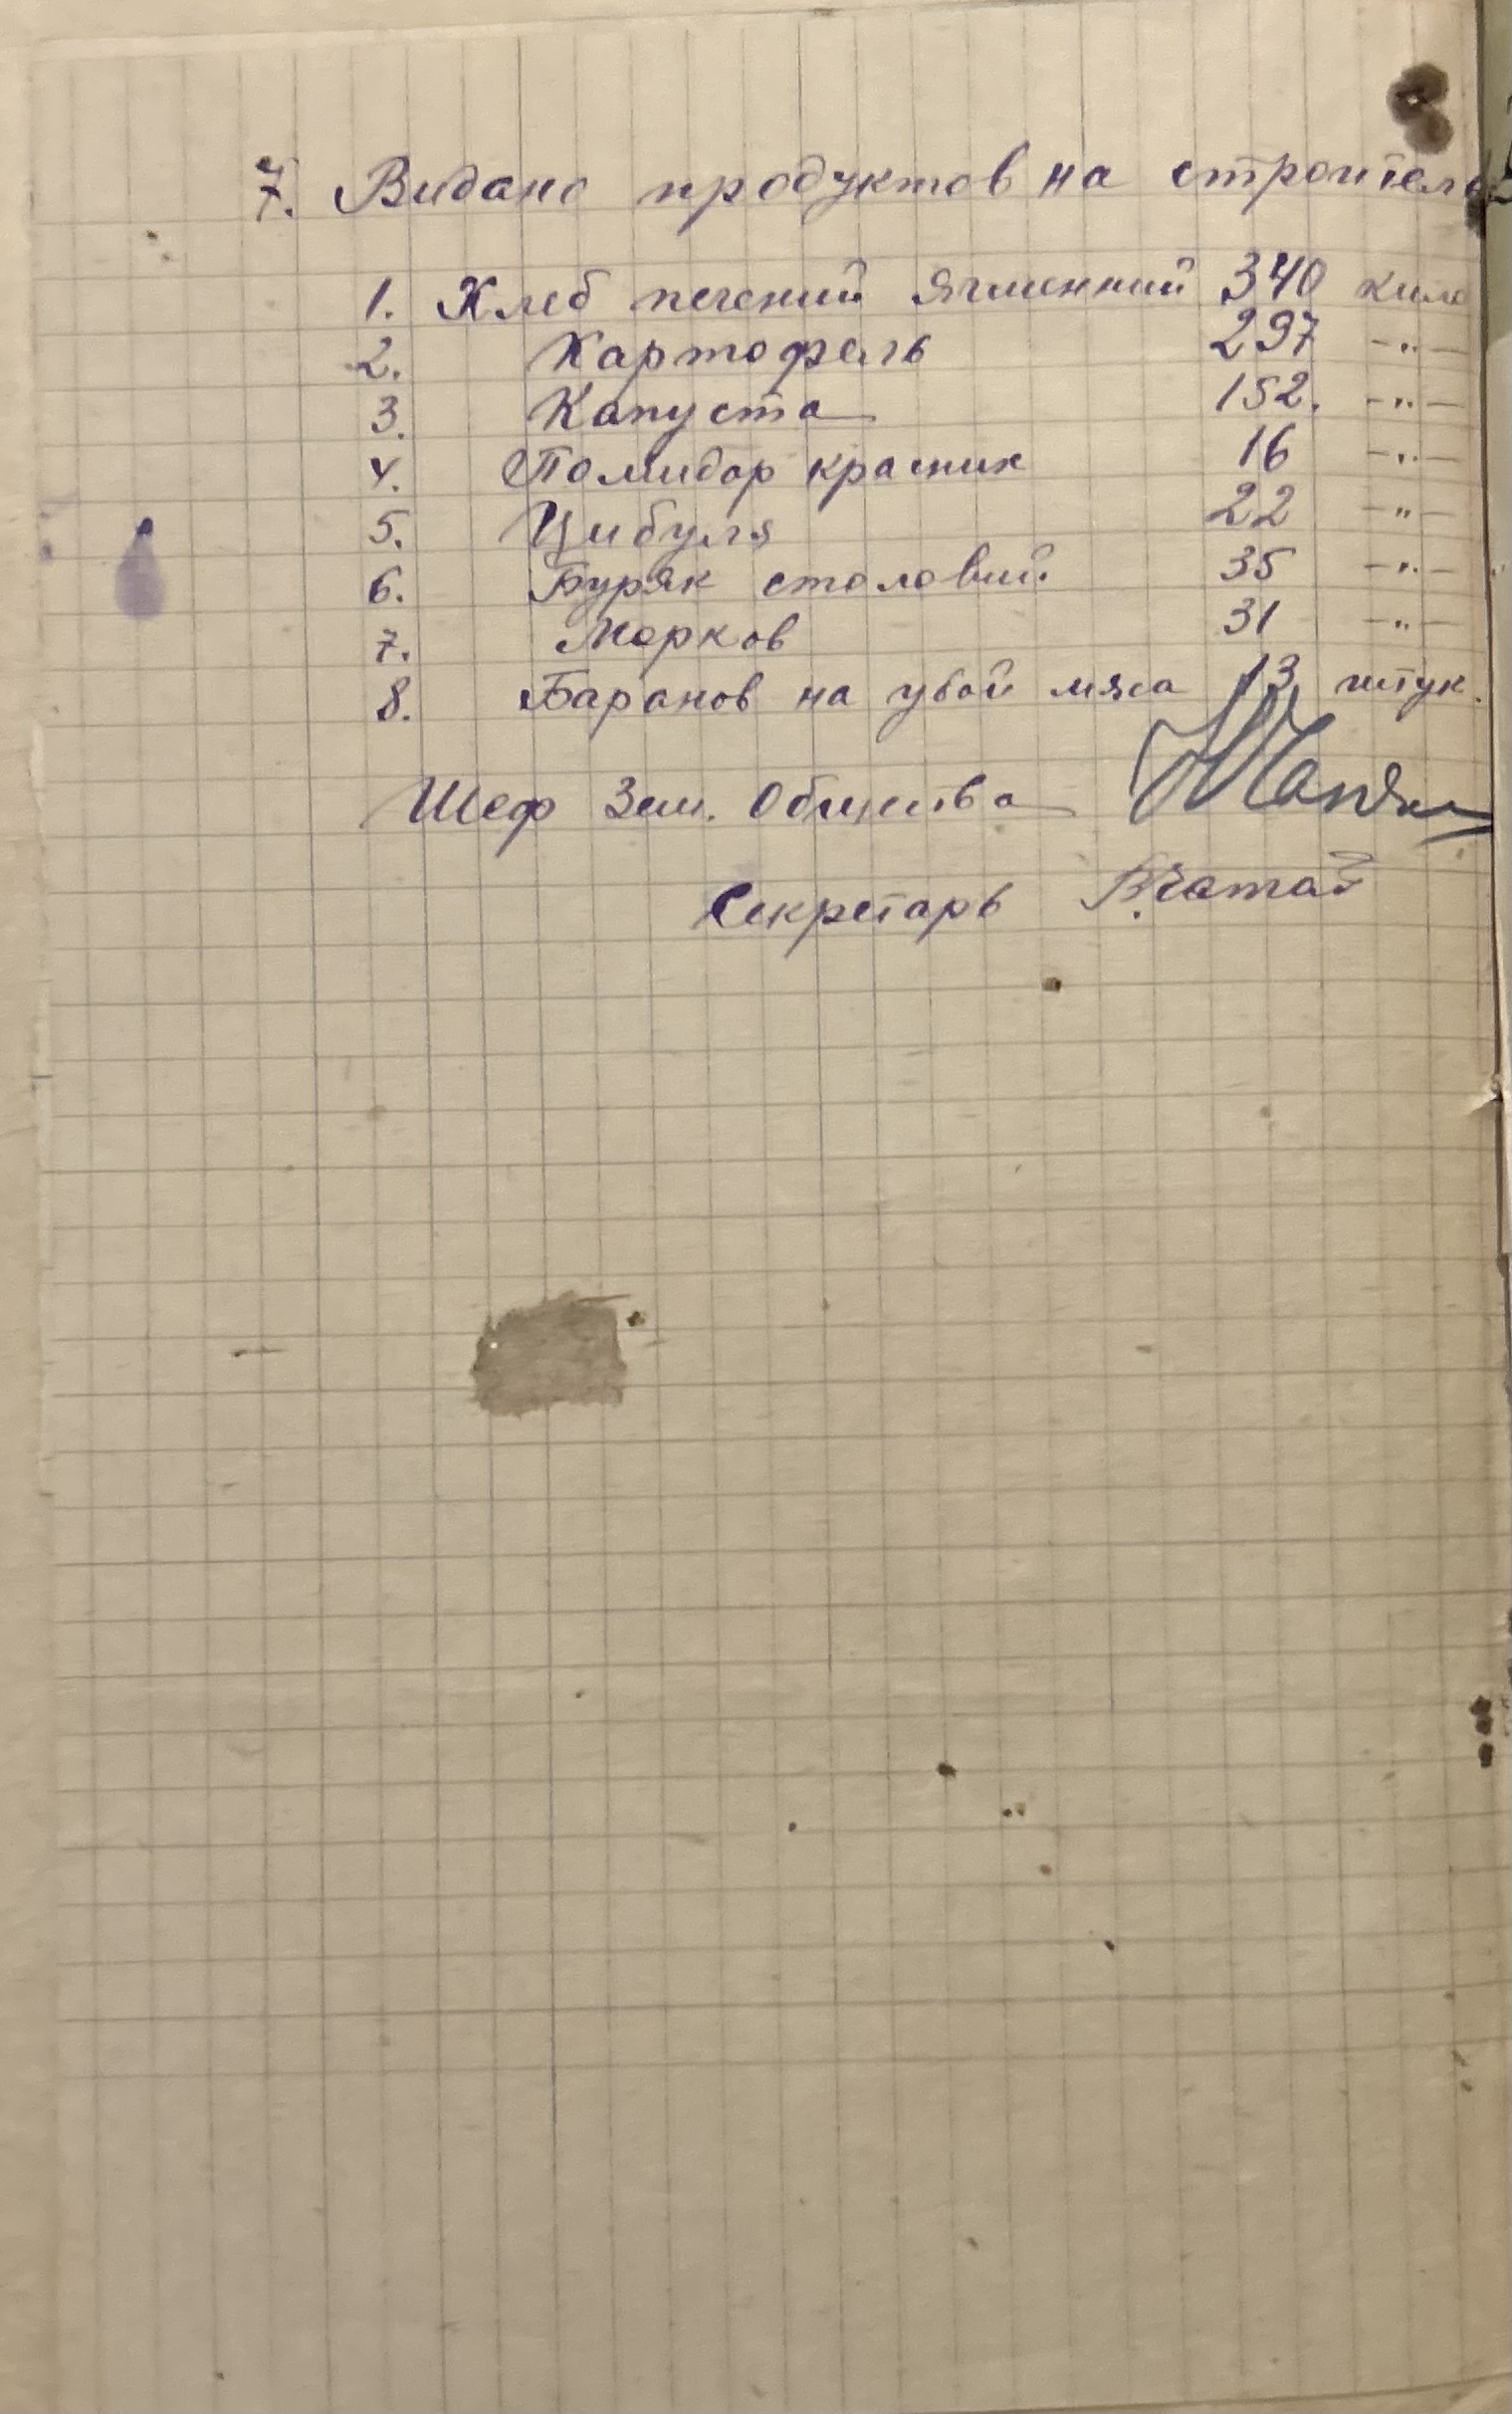 7. Видано продуктов на строитель
1. Хлеб печений Ячменний 340 кило
2. Картофель 297 -"-
3. Капуста 152. -"-
4. Помидор красних 16 -"-
5. Цибуля 22 -"-
6. Буряк столовий. 35 -"-
7. Морков 31 -"-
8. Баранов на убой мяса 13 штук.
Шеф Зем. Общества
Секретарь